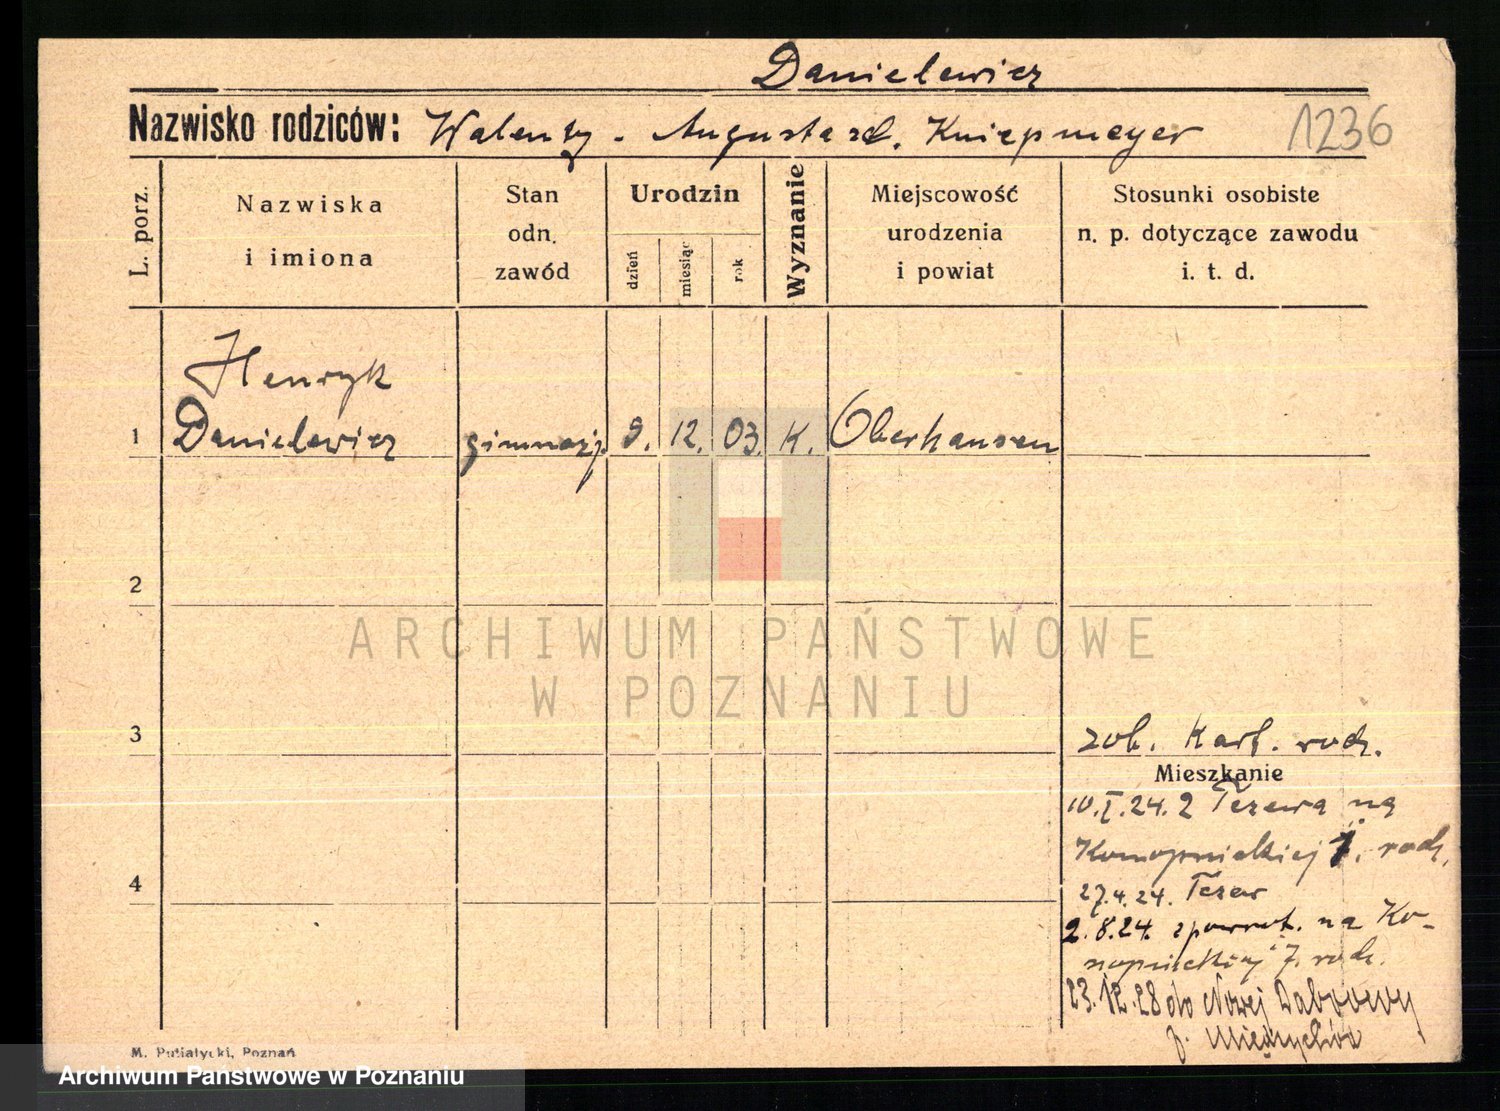 Danielewicz
Nazwisko rodziców: Walenty - Augusta zd. Kniepmeyer
1236
L. porz.
Nazwiska
i imiona
Stan
odn.
zawód
Urodzin
dzień
miesiąc
rok
Wyznanie
Miejscowość
urodzenia
i powiat
Stosunki osobiste
n. p. dotyczące zawodu
i. t. d.
Henryk
1 Danielewicz gimnazj. 9. 12. 03. K. Oberhausen
2
ARCHIWUM PAŃSTWOWE
W POZNANIU
3
zob. Kart. rodz.
Mieszkanie
10.I.24. z Tczewa na
Konopnickiej 7. rodz.
4
27.4.24. Tczew
2.8.24. zpowrot. na Ko-
nopnickiej 7. rodz.
23.12.28 do Nowej Dąbrowy
p. Międzychód
M. Putiatycki, Poznań
Archiwum Państwowe w Poznaniu